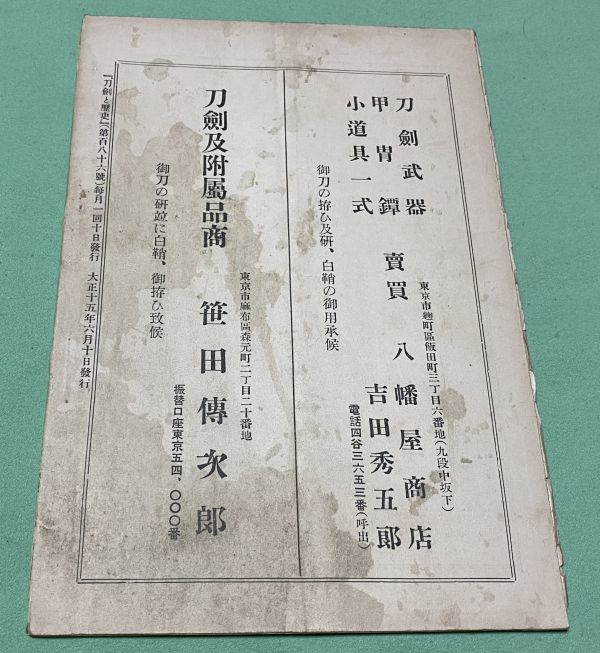 刀劍武器
甲冑鐔
小道具一式
賣買
東京市麴町區飯田町二丁目六番地(九段中坂下)
八幡屋商店
吉田秀五郎
電話四谷三六五三番(呼出)
御刀の拵ひ及研、白鞘の御用承候
刀劍及附屬品商
東京市麻布區森元町二丁目二十番地
笹田傳次郎
振替口座東京五四、〇〇〇番
御刀の研竝に白鞘、御拵ひ致候
『刀劍と歷史』(第百八十六號)每月一回十日發行 大正十五年六月十日發行